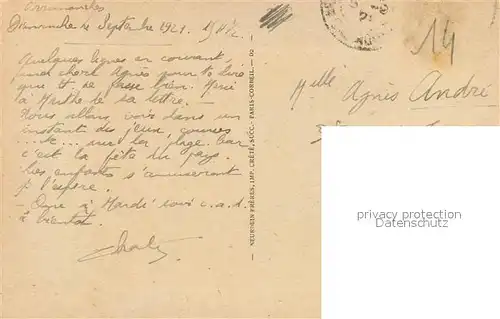 Dimanche 4 Septembre 1921.
Quelques lignes en courant
ma chère Agnès pour te dire
que tt se passe bien. Merci
à Marthe de sa lettre. —
Nous allons voir dans un
instant des jeux, courses
...etc... sur la plage car
c'est la fête du pays.
Les enfants s'amuseront
je l'espère.
— Donc à Mardi soir c.a.d.
à bientôt.
Charles
NEURDEIN FRÈRES, IMP. CRÉTÉ, SUCC. PARIS-CORBEIL. - 80
14
Melle Agnès André
privacy protection
watermark